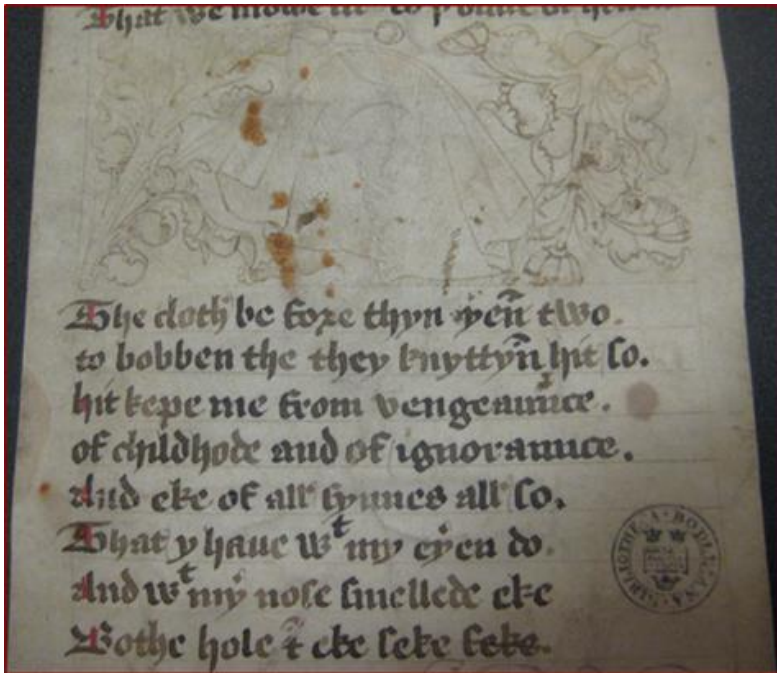 That we mowe
The cloth be fore thyn yen̄ two.
to bobben the they knyttyn̄ hit so.
hit kepe me from vengeaunce.
of childhode and of ignoraunce.
And eke of all synnes all so.
That y haue wᵗ my eyen do.
And wᵗ my nose smellede eke
Bothe hole & eke seke seke.
BIBLIOTHECA BODLEIANA